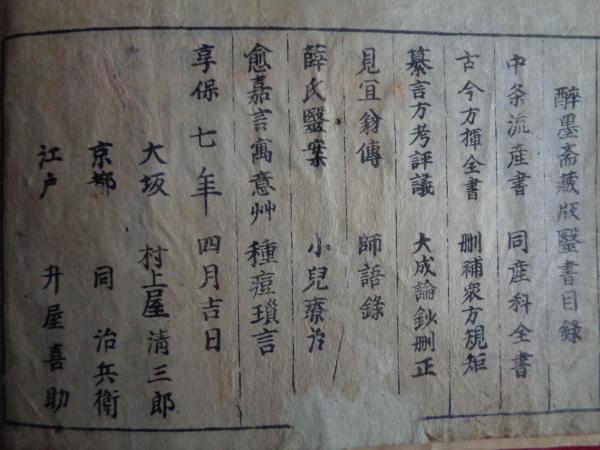 醉墨斎藏版醫書目錄
中条流産書 同産科全書
古今方揮全書 刪補衆方規矩
纂言方考評議 大成論鈔刪正
見宜翁傳 師語錄
薛氏醫案 小兒療治
愈嘉言寓意艸 種痘瑣言
享保七年四月吉日
大坂 村上屋清三郎
京都 同治兵衛
江戸 升屋喜助